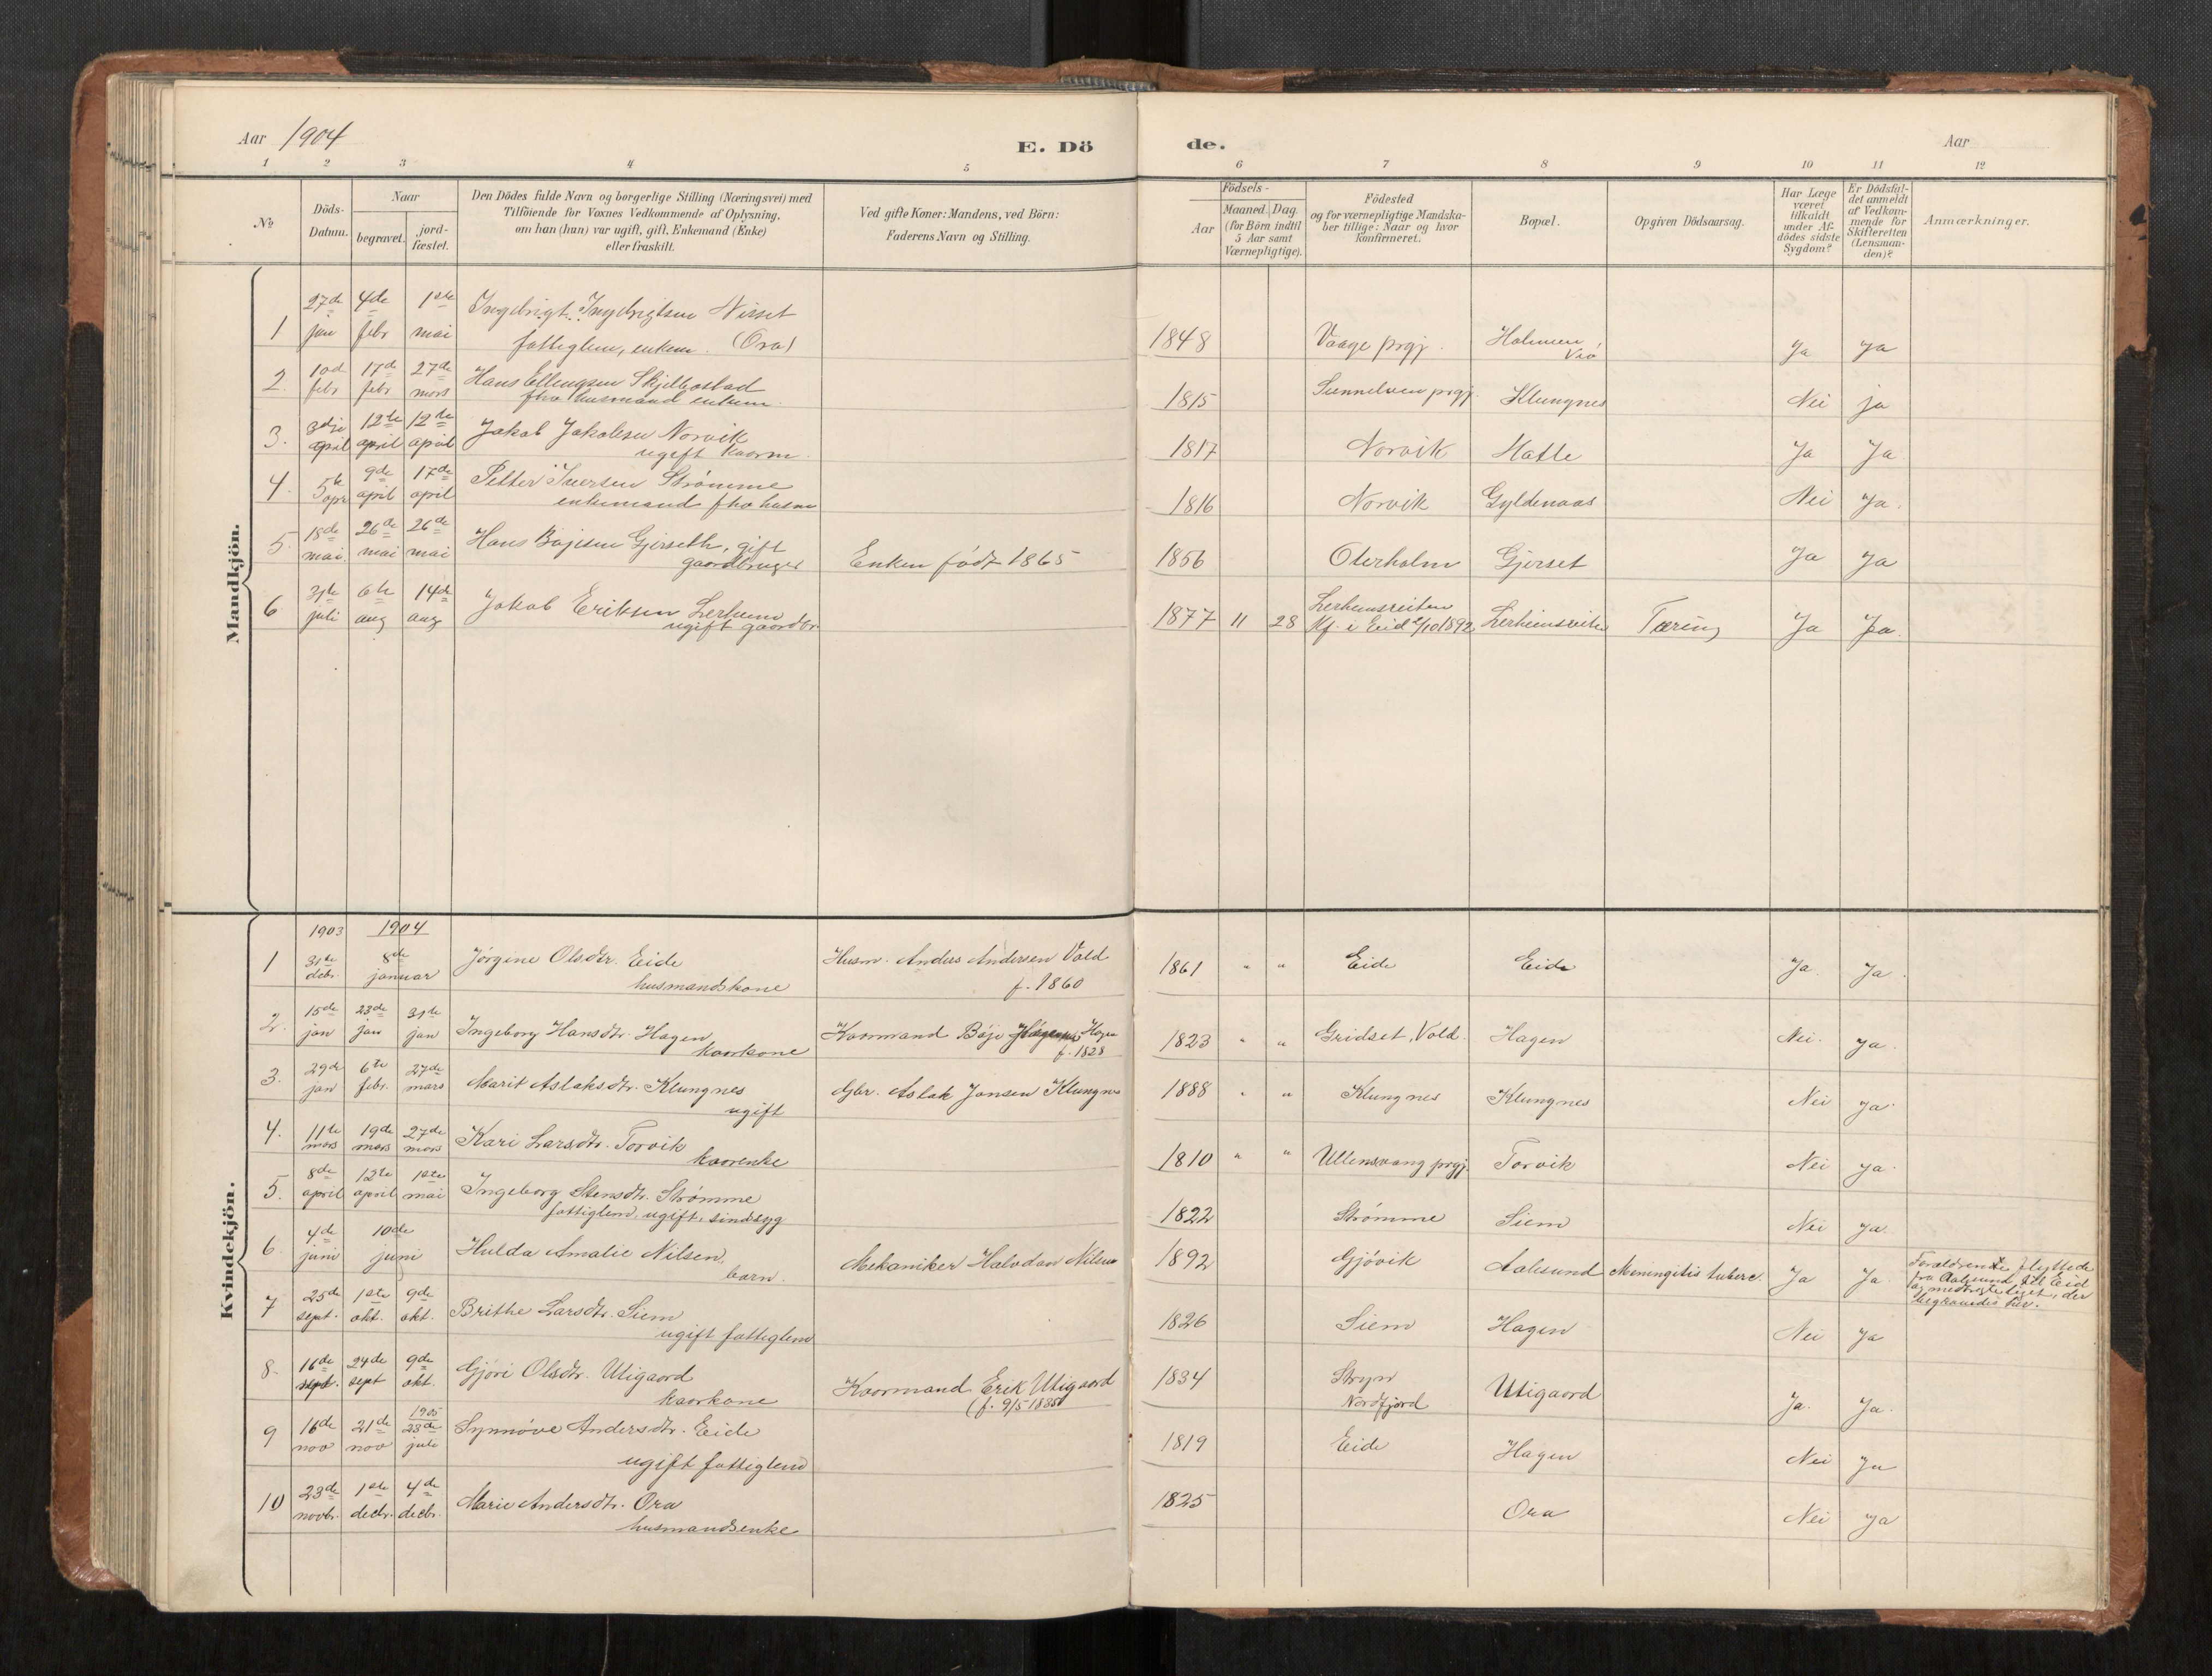 Aar 1904
E. Dö
de.
Aar
1 2 3 4 5 6 7 8 9 10 11 12
No
Döds-
Datum.
Naar
begravet.
jord-
fæstet.
Den Dödes fulde Navn og borgerlige Stilling (Næringsvei) med
Tilföiende for Voxnes Vedkommende af Oplysning,
om han (hun) var ugift, gift, Enkemand (Enke)
eller fraskilt.
Ved gifte Koner: Mandens, ved Börn:
Faderens Navn og Stilling.
Födsels-
Aar
Maaned. Dag.
(for Börn indtil
5 Aar samt
Værnepligtige).
Födested
og for værnepligtige Mandska-
ber tillige: Naar og hvor
konfirmeret.
Bopæl.
Opgiven Dödsaarsag.
Har Læge
været
tilkaldt
under Af-
dödes sidste
Sygdom?
Er Dödsfal-
det anmeldt
af Vedkom-
mende for
Skifteretten
(Lensman-
den)?
Anmærkninger.
Mandkjön.
27de 4de 1ste Ingebrigt Ingebrigtsen Nisset
1 jan febr mai fattiglem, enkem. (Ora) 1848 Vaage prgj. Holmen, Ja ja
2. 10de 17de 27de Hans Ellingsen Skjelbostad
febr febr mars fhv husmand enkem. 1815 Sunnelven prgj. Klungnes Nei ja
3. 3dje 12te 12te Jakob Jakobsen Norvik
april april april ugift kaarm. 1817 Norvik Hatle Ja Ja
4. 5te 9de 17de Petter Iversen Strømme
apr april april enkemand fhv husm 1816 Norvik Gyldenaas Nei Ja.
5 18de 26de 26de Hans Bøjesen Gjerseth, gift
mai. mai mai gaardbruger Enken født 1865 1856 Oterholm Gjerset Ja Ja
6 31te 6te 14de Jakob Eriksen Lerheim
juli aug aug ugift gaardbr. 1877 11 28 Lerheimsreiten
Kf. i Eid 2/10 1892 Lerheimsreiten Tæring Ja Ja.
Kvindekjön.
1903 1904
1 31te 8de Jørgine Olsdtr. Eide Husm. Anders Andersen Vold
debr. januar husmandskone f. 1860 1861 " " Eide Eide Ja. Ja.
2. 15de 23de 31te Ingeborg Hansdtr. Hagen Kaarmand Bøje Hagen
jan jan jan kaarkone f. 1828 1823 " " Gridset, Vold. Hagen Nei. Ja.
3. 29de 6te 27de Marit Aslaksdtr. Klungnes Gbr. Aslak Jonsen Klungnes
jan febr. mars ugift 1888 " " Klungnes Klungnes Nei Ja.
4. 11te 19de 27de Kari Larsdtr. Torvik
mars mars mars kaarenke 1810 " " Ullensvang prgj. Torvik Nei Ja.
5. 8de 12te 1ste Ingeborg Stensdtr. Strømme
april april mai fattiglem, ugift, sindssyg 1822 Strømme Siem Nei Ja.
6. 4de 10de Hulda Amalie Nilsen,
juni juni barn. Mekaniker Halvdan Nilsen 1892 Gjøvik Aalesund Meningitis tuberc. Ja Ja. Forældrene flyttede
fra Aalesund til Eid
og medbragte liget, der
begravedes her.
7 25de 1ste 9de Brithe Larsdtr. Siem
sept. okt. okt. ugift fattiglem 1826 Siem Hagen Nei Ja
8. 16de 24de 9de Gjøri Olsdtr. Utigaard
sept. sept okt. kaarkone Kaarmand Erik Utigaard
(f. 9/5 1835) 1834 Stryn
Nordfjord Utigaard Ja. Ja.
1905
9 16de 21de 23de Synnøve Andersdtr. Eide
nov nov juli ugift fattiglem 1819 Eide Hagen Nei Ja
10 23de 1ste 4de Marie Andersdtr. Ora
novbr. decbr. decbr. husmandsenke 1825 Ora Nei Ja